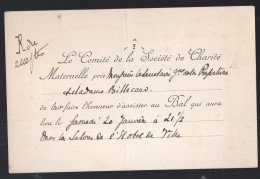 Le Comité de la Société de Charité
Maternelle prie Monsieur le Secrétaire Gal de la Préfecture
et Madame Billecard
de lui faire l'honneur d'assister au Bal qui aura
lieu le Samedi 20 Janvier à 21h
Dans les Salons de l'Hôtel de Ville